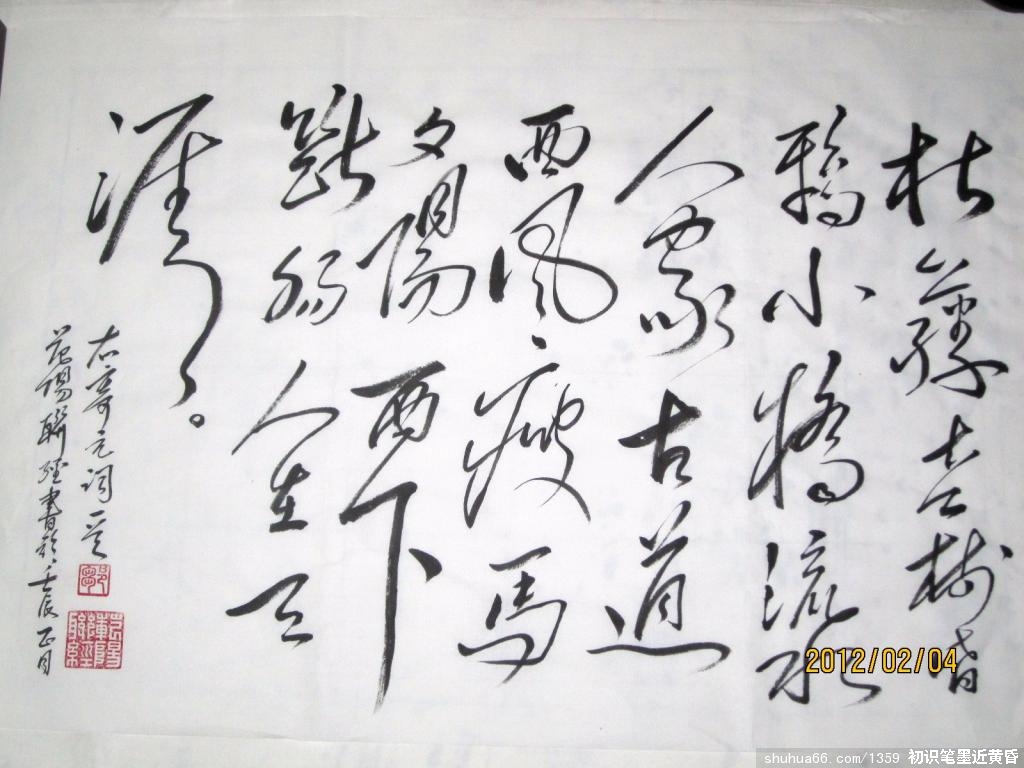 枯藤老樹昏
鴉小橋流水
人家古道
西風瘦馬
夕陽西下
斷腸人在天
涯。
右寄元詞一
范陽聯經書於壬辰正月
2012/02/04
shuhua66.com/1359 初识笔墨近黄昏